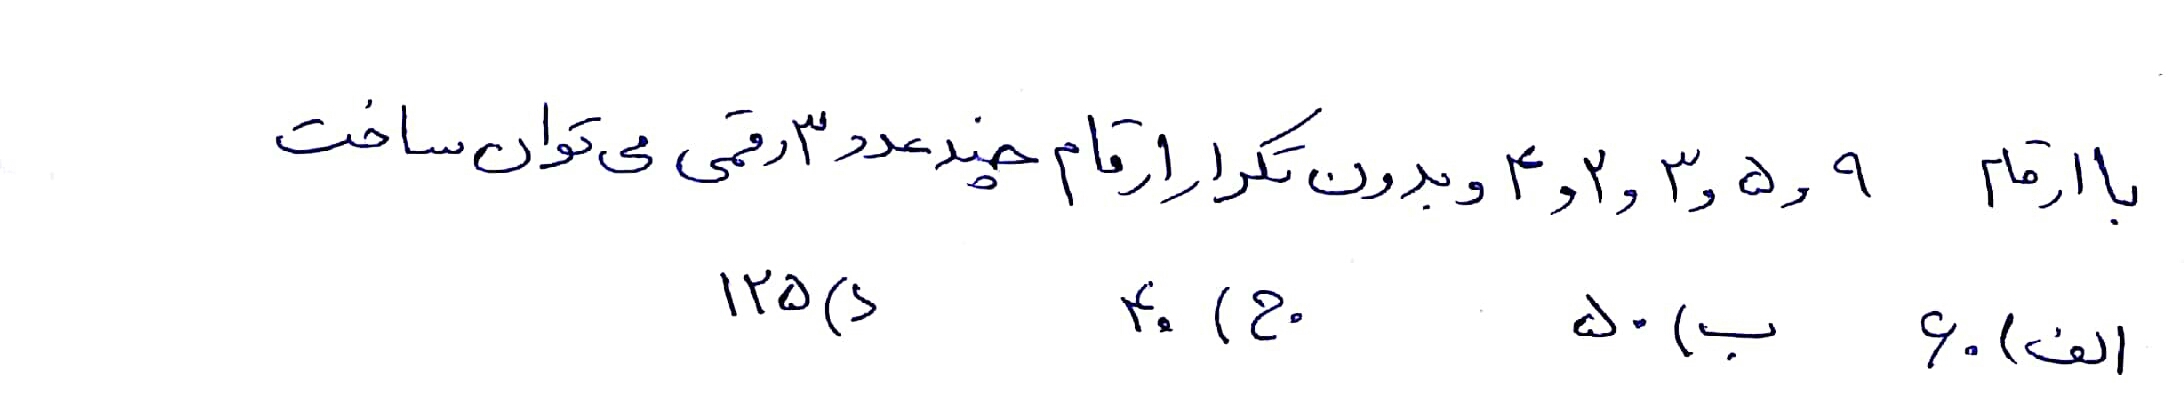 با ارقام ۹ و ۵ و ۳ و ۲ و ۴ و بدون تکرار ارقام چند عدد ۳ رقمی می توان ساخت
الف) ۶۰ ب) ۵۰ ج) ۴۰ د) ۱۲۵